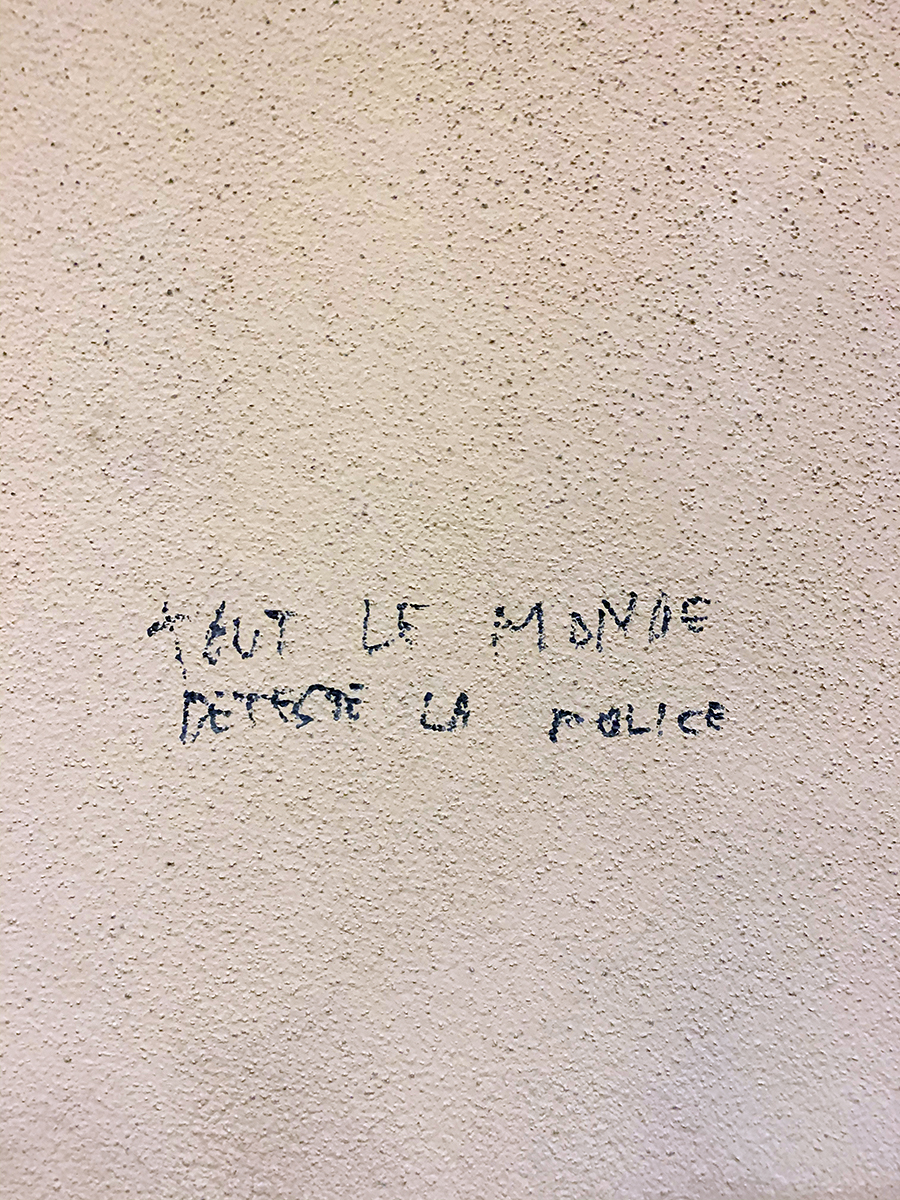 TOUT LE MONDE
DETESTE LA POLICE